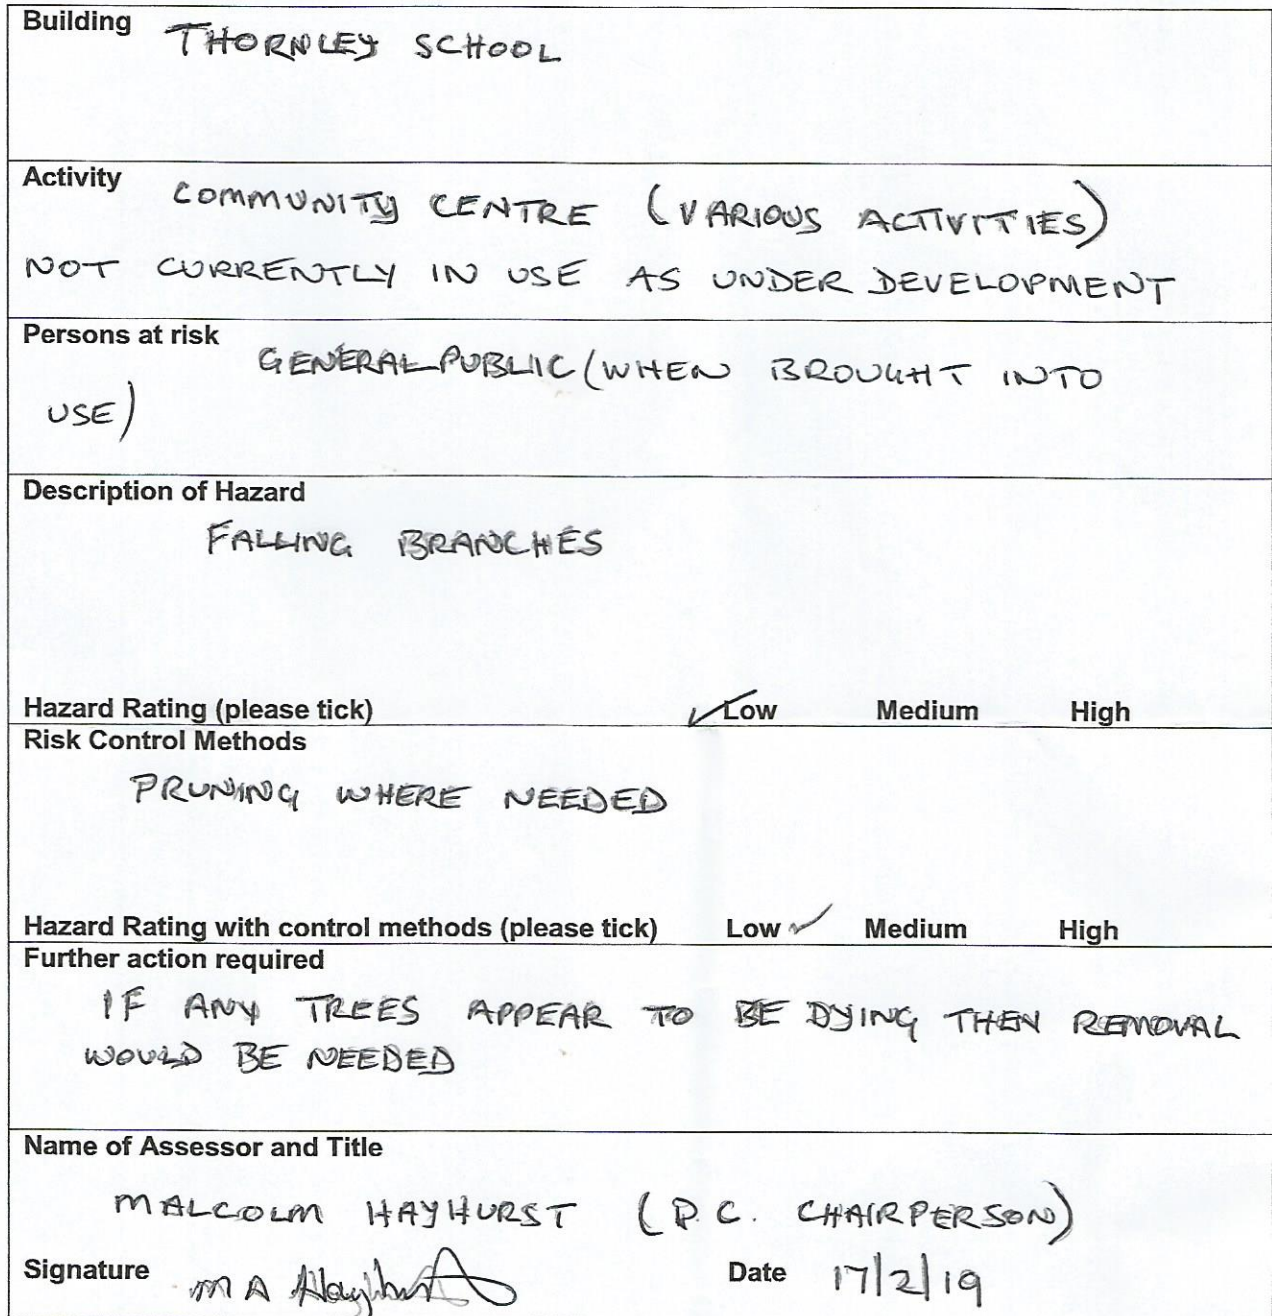 Building THORNLEY SCHOOL
Activity COMMUNITY CENTRE (VARIOUS ACTIVITIES)
NOT CURRENTLY IN USE AS UNDER DEVELOPMENT
Persons at risk GENERAL PUBLIC (WHEN BROUGHT INTO
USE)
Description of Hazard
FALLING BRANCHES
Hazard Rating (please tick) ✓Low Medium High
Risk Control Methods
PRUNING WHERE NEEDED
Hazard Rating with control methods (please tick) Low ✓ Medium High
Further action required
IF ANY TREES APPEAR TO BE DYING THEN REMOVAL
WOULD BE NEEDED
Name of Assessor and Title
MALCOLM HAYHURST (P.C. CHAIRPERSON)
Signature M A Hayhurst Date 17/2/19